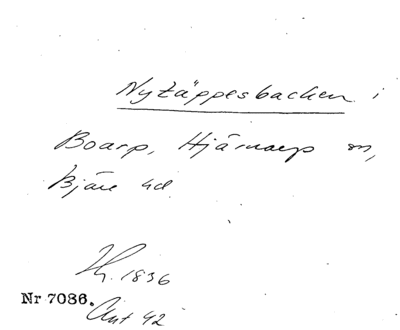 Nytäppesbacken i
Boarp, Hjärnarp sn,
Bjäre hd
Th. 1836
Nr 7086.
Ant 42